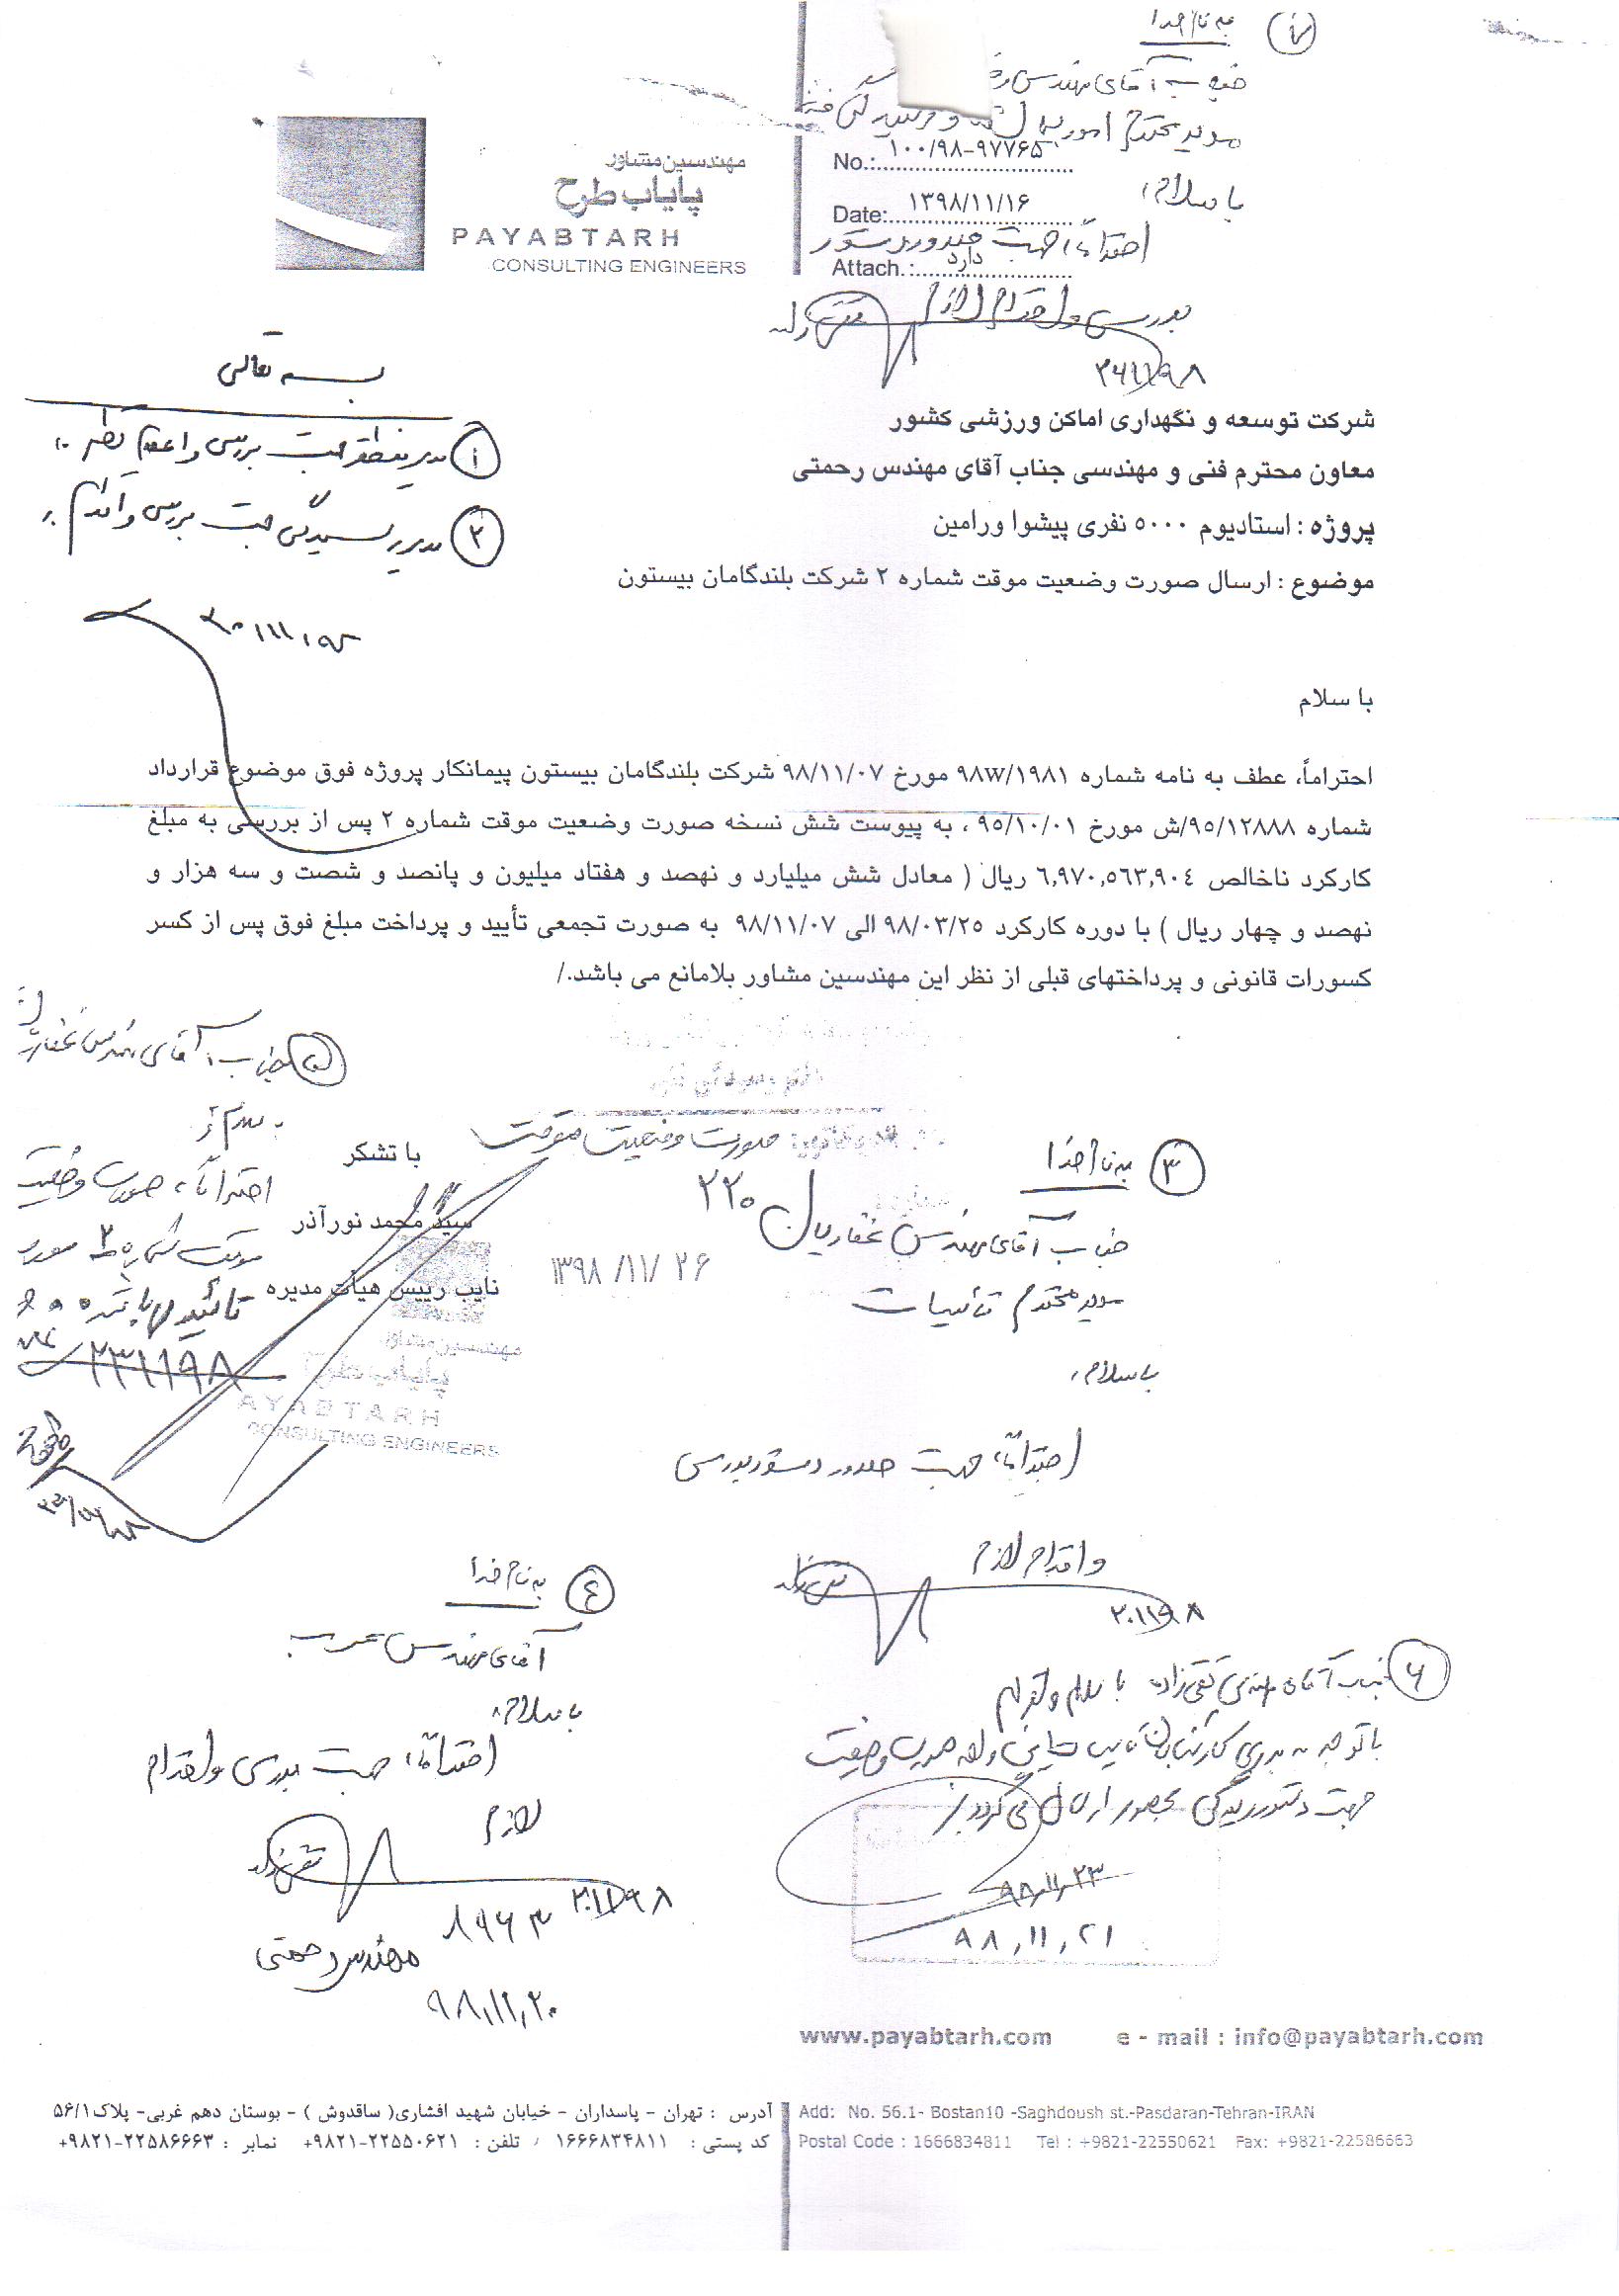 به نام خدا
جناب آقای مهندس
مدیر محترم امور
با سلام،
احتراماً، جهت صدور دستور
بررسی و اقدام لازم
مهندسین مشاور
پایاب طرح
PAYABTARH
CONSULTING ENGINEERS
No.: ۱۰۰/۹۸-۹۷۷۶۵
Date: ۱۳۹۸/۱۱/۱۶
Attach.: دارد
بسمه تعالی
۱ مدیر منطقه جهت بررسی و اعلام نظر
۲ مدیر رسیدگی جهت بررسی و اقدام
شرکت توسعه و نگهداری اماکن ورزشی کشور
معاون محترم فنی و مهندسی جناب آقای مهندس رحمتی
پروژه : استادیوم ۵۰۰۰ نفری پیشوا ورامین
موضوع : ارسال صورت وضعیت موقت شماره ۲ شرکت بلندگامان بیستون
با سلام
احتراماً، عطف به نامه شماره ۹۸W/۱۹۸۱ مورخ ۹۸/۱۱/۰۷ شرکت بلندگامان بیستون پیمانکار پروژه فوق موضوع قرارداد
شماره ۹۵/۱۲۸۸۸/ش مورخ ۹۵/۱۰/۰۱ ، به پیوست شش نسخه صورت وضعیت موقت شماره ۲ پس از بررسی به مبلغ
کارکرد ناخالص ۶,۹۷۰,۵۶۳,۹۰۴ ریال ( معادل شش میلیارد و نهصد و هفتاد میلیون و پانصد و شصت و سه هزار و
نهصد و چهار ریال ) با دوره کارکرد ۹۸/۰۳/۲۵ الی ۹۸/۱۱/۰۷ به صورت تجمعی تأیید و پرداخت مبلغ فوق پس از کسر
کسورات قانونی و پرداختهای قبلی از نظر این مهندسین مشاور بلامانع می باشد./
با تشکر
سید محمد نورآذر
نایب رییس هیأت مدیره
مهندسین مشاور
پایاب طرح
PAYABTARH
CONSULTING ENGINEERS
صورت وضعیت موقت
۲۲۰
۱۳۹۸/۱۱/۲۶
۳ به نام خدا
جناب آقای مهندس غفاریان
مدیر محترم تأسیسات
با سلام،
احتراماً، جهت صدور دستور بررسی
و اقدام لازم
۴ به نام خدا
آقای مهندس عرب
با سلام،
احتراماً، جهت بررسی و اقدام
لازم
۸۹۶۳
مهندس رحمتی
۹۸,۱۱,۲۰
۵ جناب آقای مهندس غفاریان
با سلام
احتراماً، صورت وضعیت
موقت شماره ۲ مورد
تائید می باشد
۶ جناب آقای مهندس تقی زاده با سلام و احترام
با توجه به بررسی کارشناسان
جهت دستور رسیدگی بحضور ارسال می گردد
۹۸,۱۱,۲۳
۹۸,۱۱,۲۱
www.payabtarh.com e - mail : info@payabtarh.com
آدرس : تهران - پاسداران - خیابان شهید افشاری( ساقدوش ) - بوستان دهم غربی- پلاک۵۶/۱
کد پستی : ۱۶۶۶۸۳۴۸۱۱ / تلفن : ۲۲۵۵۰۶۲۱-۹۸۲۱+ نمابر : ۲۲۵۸۶۶۶۳-۹۸۲۱+
Add: No. 56.1- Bostan10 -Saghdoush st.-Pasdaran-Tehran-IRAN
Postal Code : 1666834811 Tel : +9821-22550621 Fax: +9821-22586663